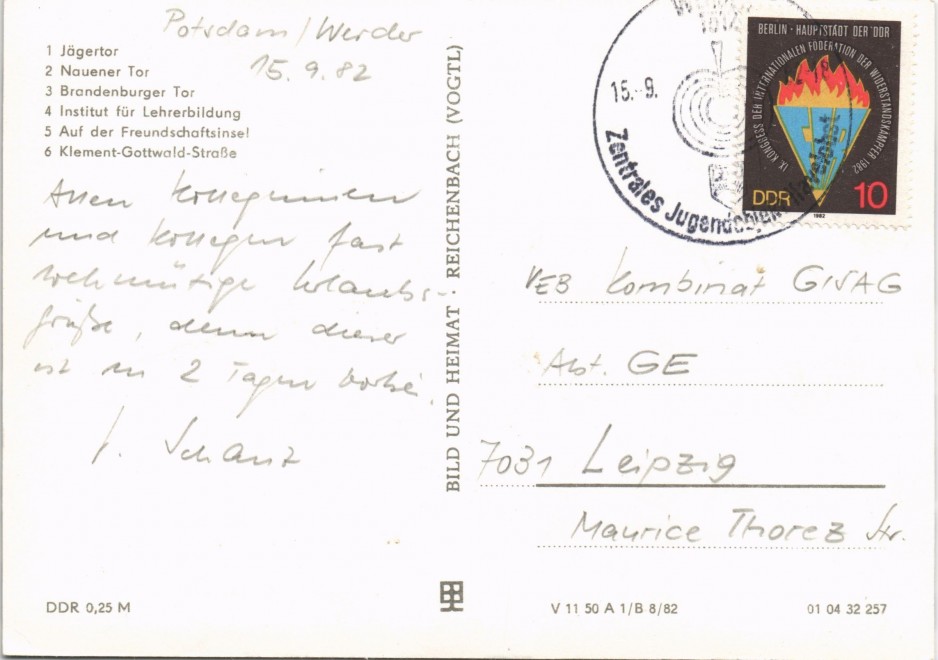 Potsdam/Werder
15.9.82
1 Jägertor
2 Nauener Tor
3 Brandenburger Tor
4 Institut für Lehrerbildung
5 Auf der Freundschaftsinsel
6 Klement-Gottwald-Straße
Allen Kolleginnen
und Kollegen fast
wehmütige Urlaubs-
grüße, denn dieser
ist in 2 Tagen vorbei.
Schanz
DDR 0,25 M
BILD UND HEIMAT REICHENBACH (VOGTL)
15.-9.
Zentrales Jugendobjekt Havelobst
BERLIN · HAUPTSTADT DER DDR
IX. KONGRESS DER INTERNATIONALEN FÖDERATION DER WIDERSTANDSKÄMPFER 1982
DDR 10
1982
VEB Kombinat GISAG
Abt. GE
7031 Leipzig
Maurice Thorez Str.
V 11 50 A 1/B 8/82
01 04 32 257